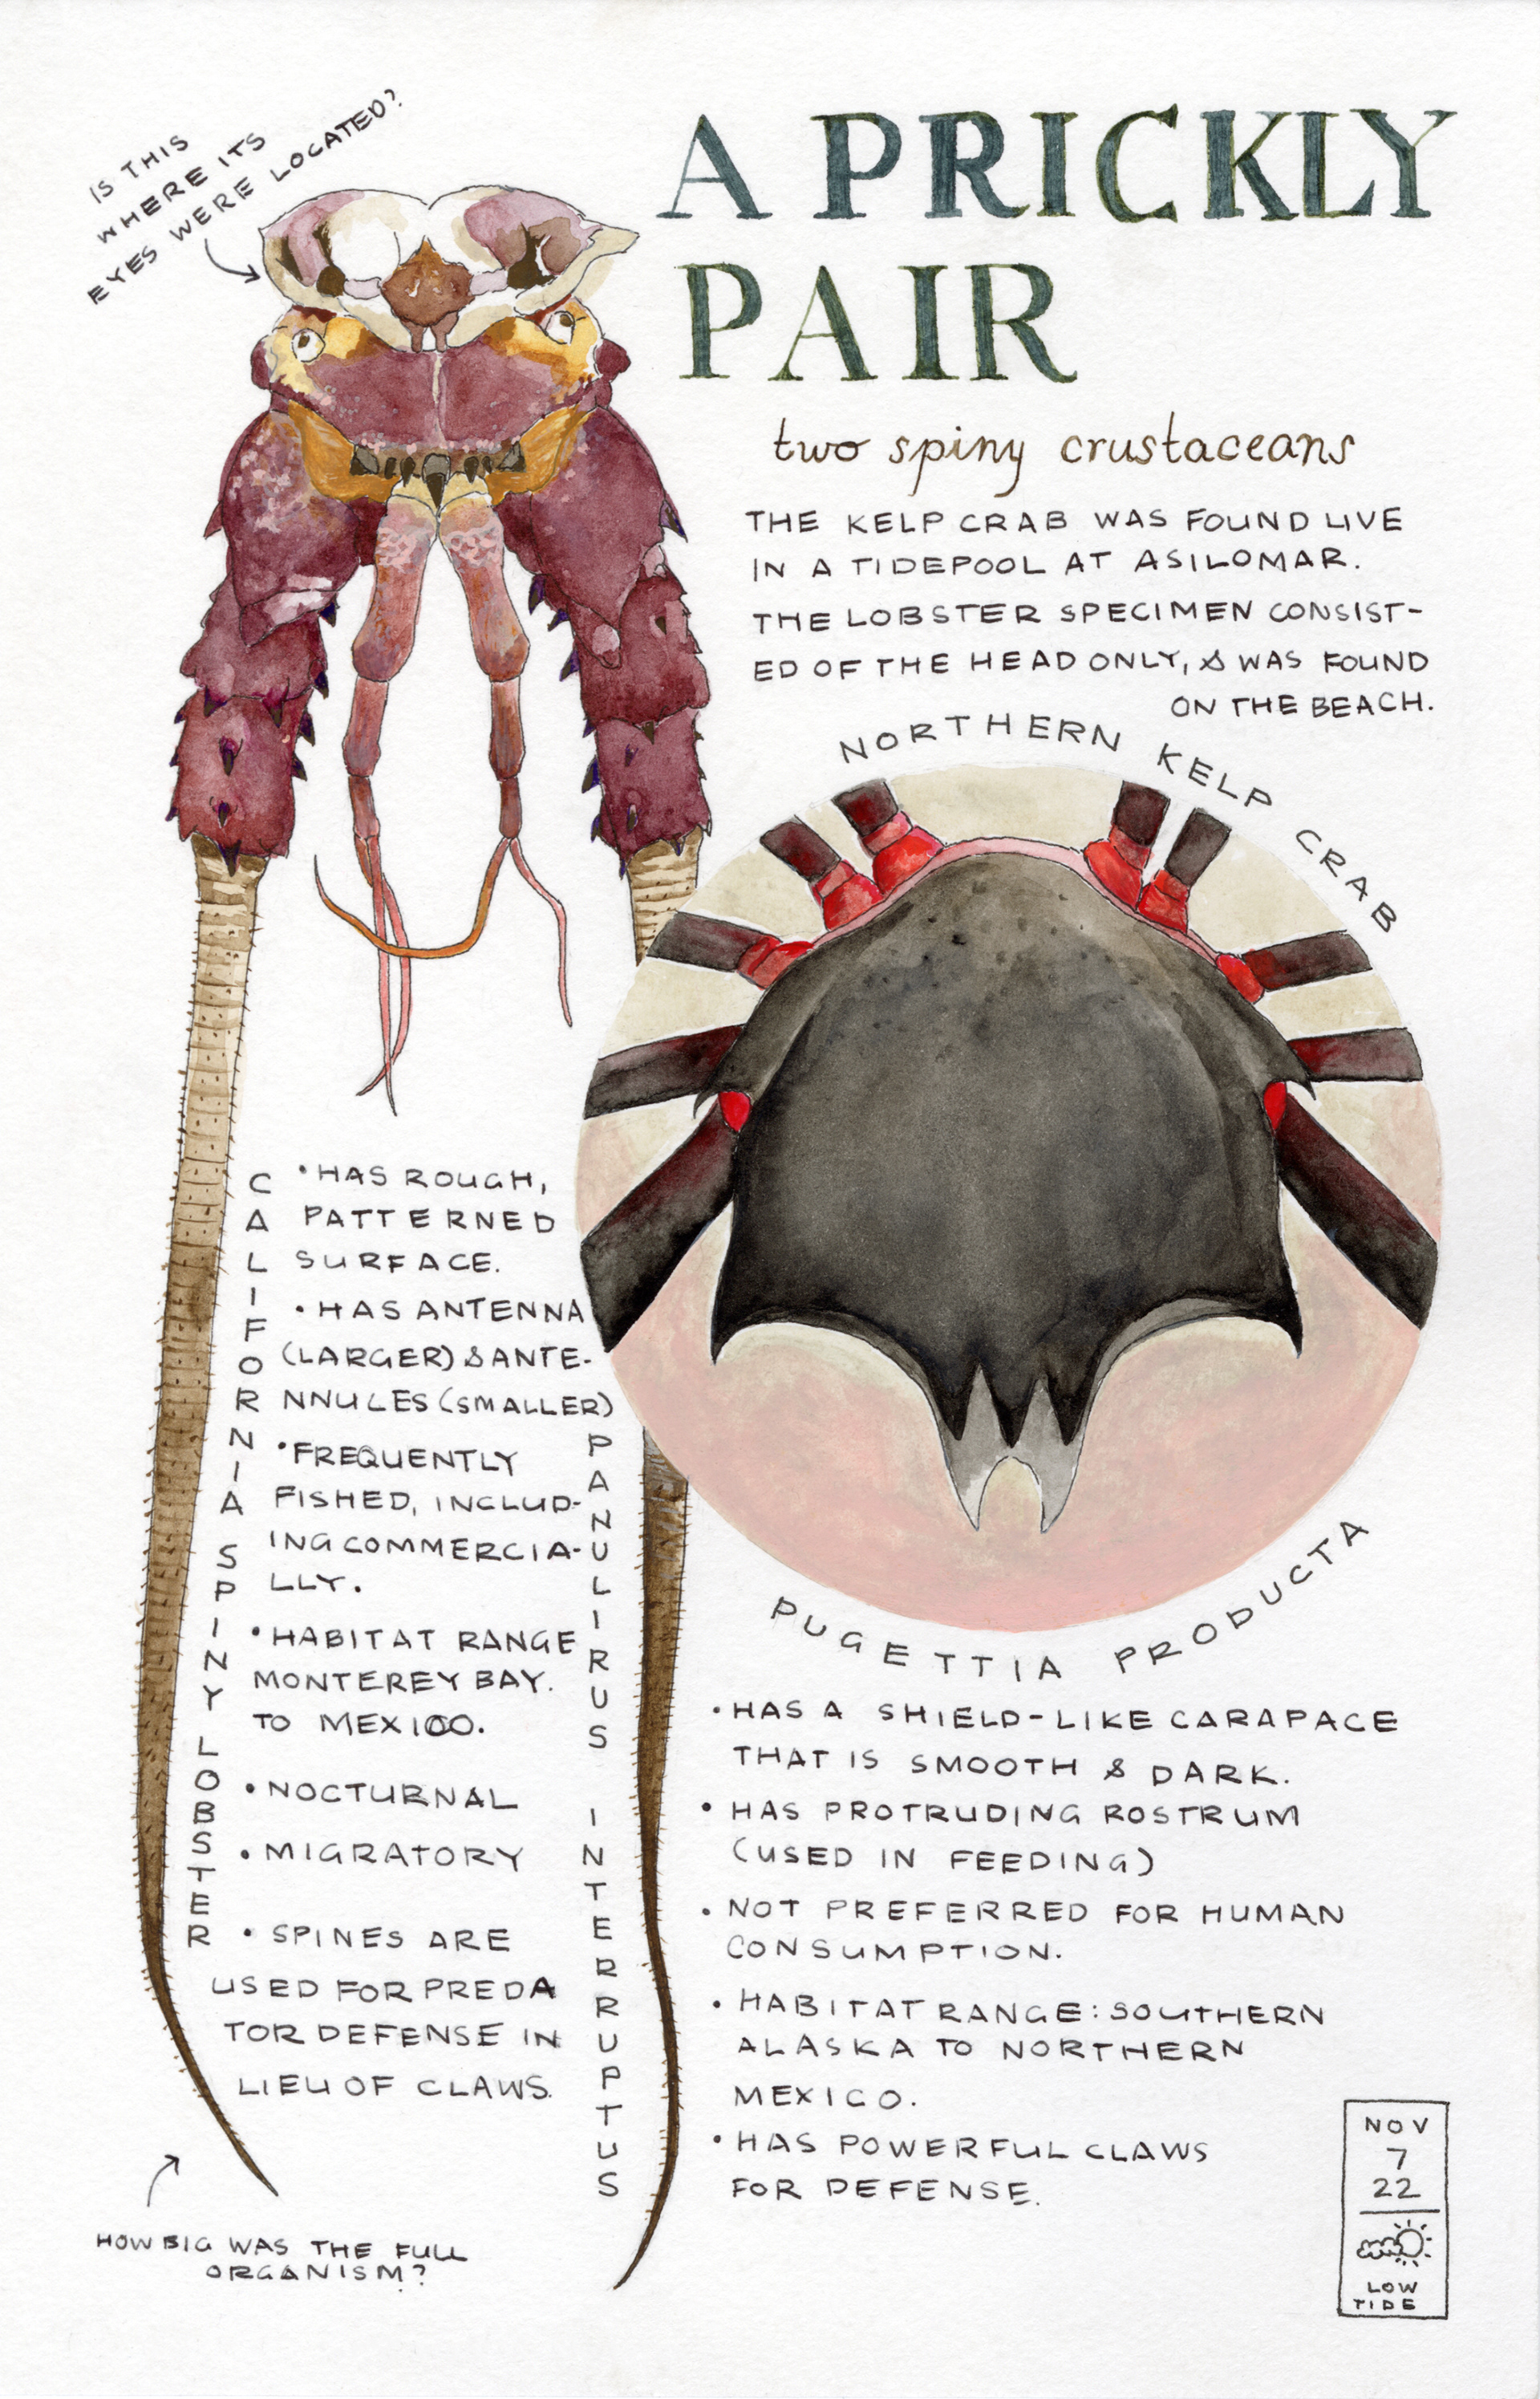 IS THIS
WHERE ITS
EYES WERE LOCATED?
A PRICKLY
PAIR
two spiny crustaceans
THE KELP CRAB WAS FOUND LIVE
IN A TIDEPOOL AT ASILOMAR.
THE LOBSTER SPECIMEN CONSIST-
ED OF THE HEAD ONLY, & WAS FOUND
ON THE BEACH.
NORTHERN KELP CRAB
CALIFORNIA SPINY LOBSTER
• HAS ROUGH,
PATTERNED
SURFACE.
• HAS ANTENNA
(LARGER) & ANTE-
NNULES (SMALLER)
• FREQUENTLY
FISHED, INCLUD-
ING COMMERCIA-
LLY.
• HABITAT RANGE
MONTEREY BAY.
TO MEXICO.
• NOCTURNAL
• MIGRATORY
• SPINES ARE
USED FOR PREDA
TOR DEFENSE IN
LIEU OF CLAWS.
PANULIRUS INTERRUPTUS
HOW BIG WAS THE FULL
ORGANISM?
PUGETTIA PRODUCTA
• HAS A SHIELD-LIKE CARAPACE
THAT IS SMOOTH & DARK.
• HAS PROTRUDING ROSTRUM
(USED IN FEEDING)
• NOT PREFERRED FOR HUMAN
CONSUMPTION.
• HABITAT RANGE: SOUTHERN
ALASKA TO NORTHERN
MEXICO.
• HAS POWERFUL CLAWS
FOR DEFENSE.
NOV
7
22
LOW
TIDE